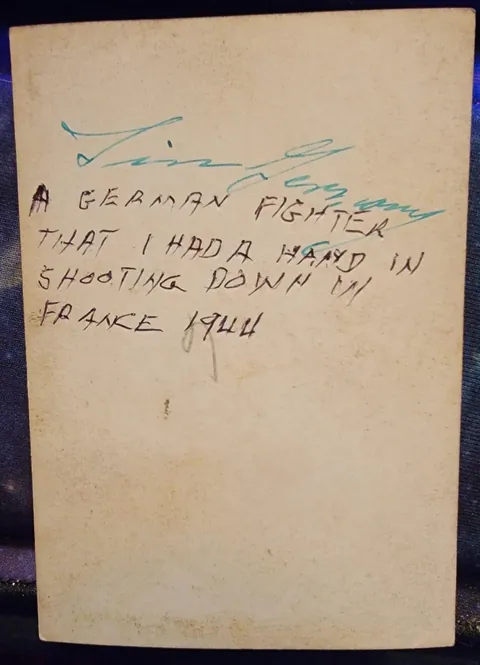 Germany
A GERMAN FIGHTER
THAT I HAD A HAND IN
SHOOTING DOWN IN
FRANCE 1944